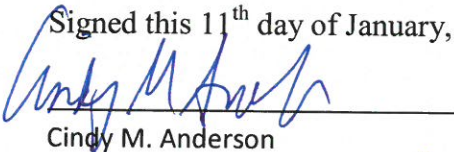 Signed this 11th day of January,
Cindy M Anderson
Cindy M. Anderson